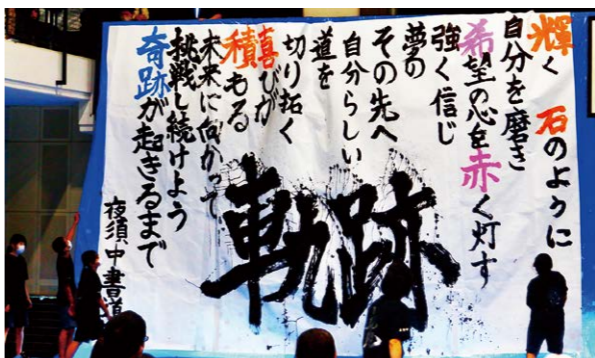 輝く 石のように
自分を磨き
希望の心を赤く灯す
強く信じ
夢の
その先へ
自分らしい
道を
切り拓く
喜びが
積もる
未来に向かって
挑戦し続けよう
奇跡が起きるまで
軌跡
夜須中書道